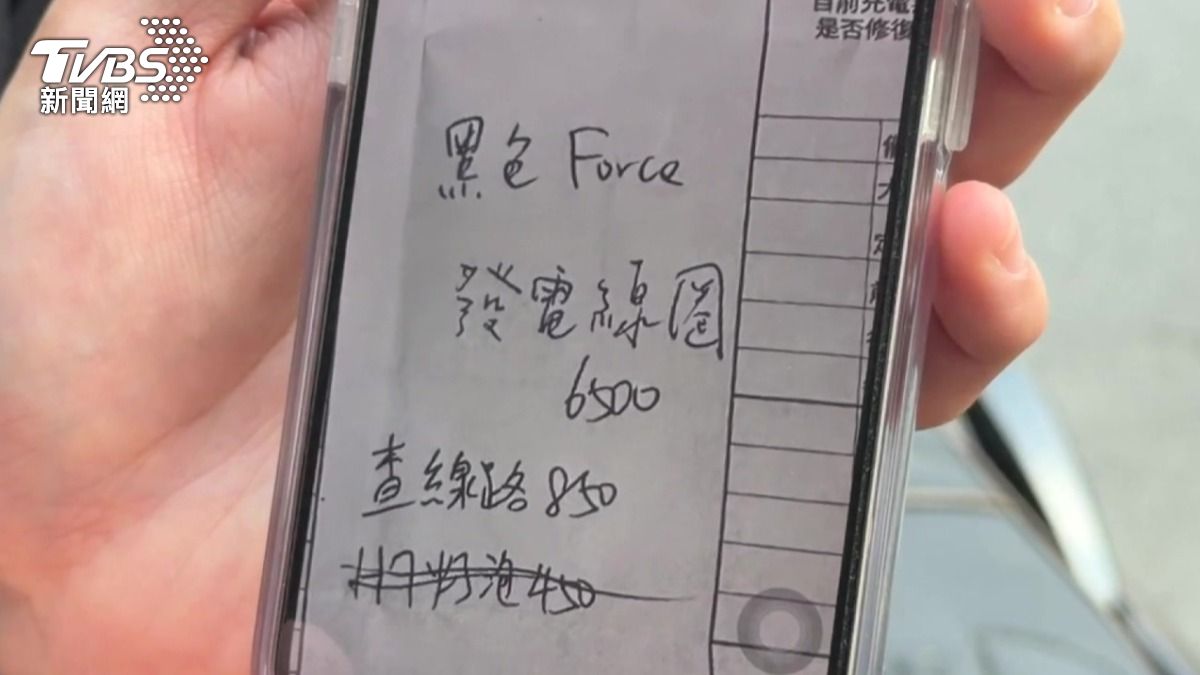 TVBS
新聞網
目前充電
是否修復
黑色 Force
發電線圈
6500
查線路 850
450